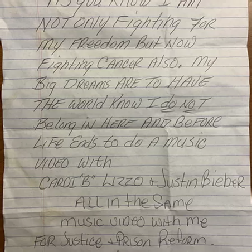 AS YOU KNOW I AM
NOT ONLY FIGHTING FOR
MY FREEDOM BUT NOW
FIGHTING CANCER ALSO, MY
BIG DREAMS ARE TO HAVE
THE WORLD KNOW I do NOT
Belong in HERE AND BEFORE
LIFE Ends to do A MUSIC
VIDEO WITH
CARDI "B" LIZZO + Justin Bieber
ALL in the SAME
MUSIC VIDEO WITH ME
FOR Justice + Prison Reform.